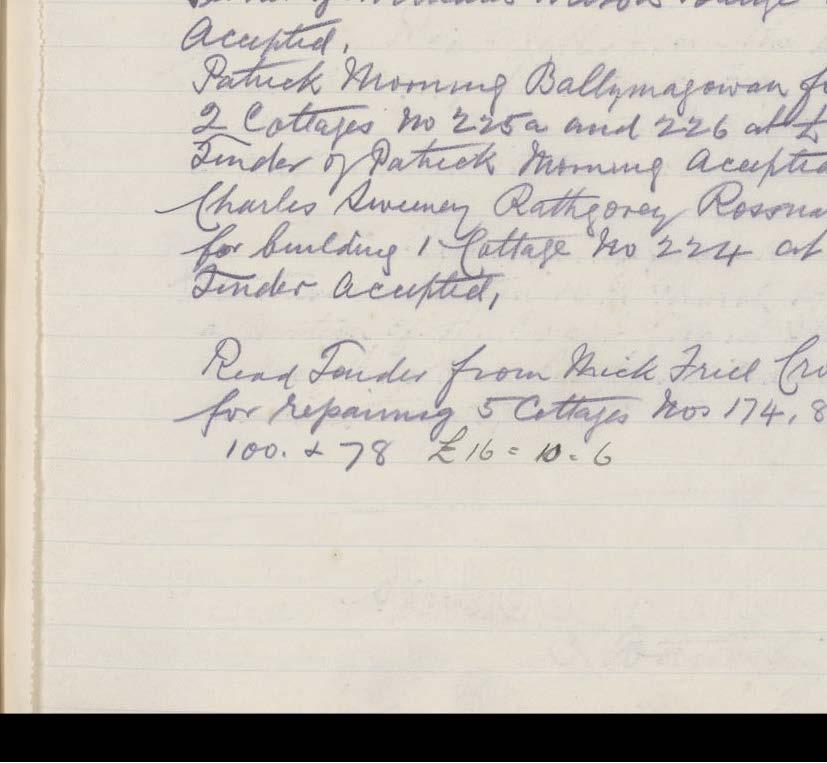 Accepted.
Patrick Morning Ballymagowan
2 Cottages No 225a and 226 at £
Tender of Patrick Morning Accepted
Charles Sweeney Rathgorey
for building 1 Cottage No 224 at
Tender accepted,
Read Tender from Mick Friel
for repairing 5 Cottages Nos 174, 8
100. & 78 £16 = 10 = 6